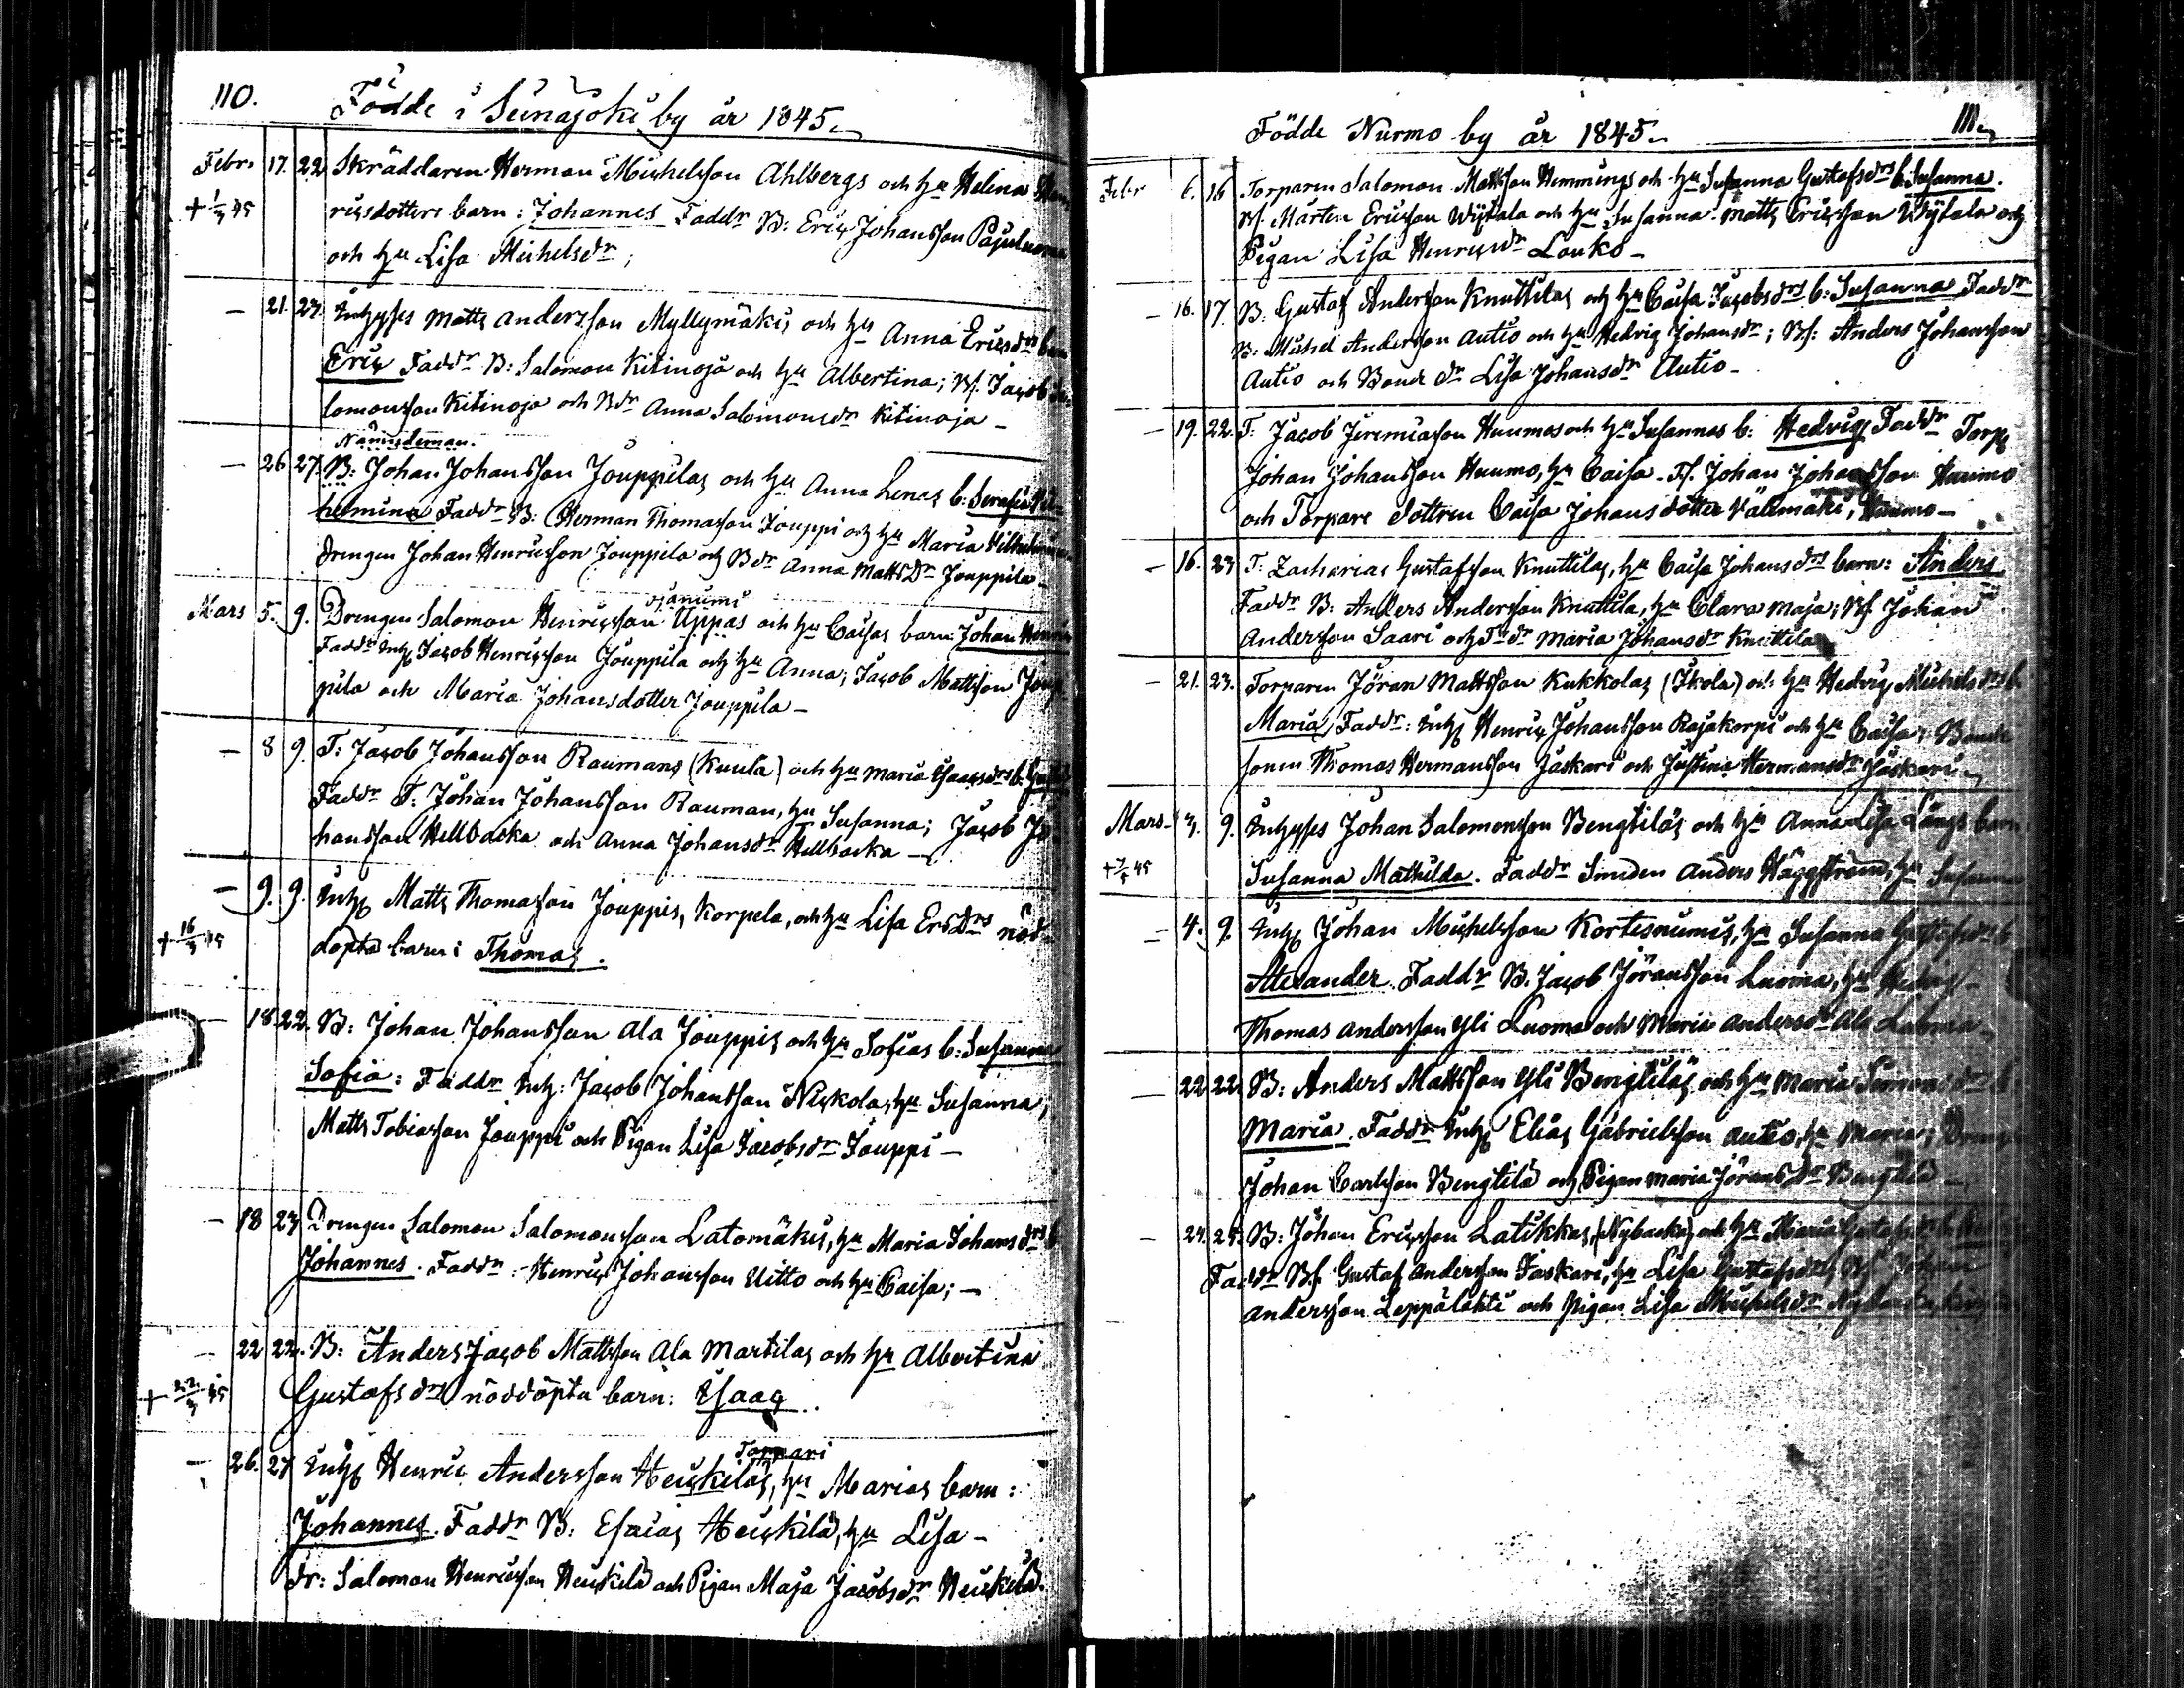 110.
Födde i Seinäjoki by år 1845.
Febr. 17. 22. Skräddaren Herman Michelsson Ahlbergs och hu Helena Hen
+ 1/3 45 ricsdotters barn: Johannes Faddr B: Eric Johansson Pajuluoma
och hu Lisa Michelsdr;
— 21. 23. Inhyses Matts Andersson Myllymäkis och hu Anna Ericsdrs barn
Eric Faddr B: Salomon Kitinoja och hu Albertina; Bs. Jacob Sa
lomonsson Kitinoja och Bdr Anna Salomonsdr Kitinoja —
Nämndeman.
— 26 27. B: Johan Johansson Jouppilas och hu Anna Lenas b: Serafia Vil
helmina Faddr B: Herman Thomasson Jouppi och hu Maria Vilhelmina
Drengen Johan Henricsson Jouppila och Bdr Anna Matts Dr Jouppila —
Mars 5. 9. Drengen Salomon Henricsson Uppas och hu Caisas barn: Johan Henric
Faddr Inh. Jacob Henricsson Jouppila och hu Anna; Jacob Mattsson Joup
pila och Maria Johansdotter Jouppila —
— 8 9. T: Jacob Johansson Raumans (Kuula) och hu Maria Isaacsdrs b.
Faddr T: Johan Johansson Rauman, hu Susanna; Jacob Jo
hansson Hellbacka och Anna Johansdr Hellbacka —
— 9. 9. Inh. Matts Thomasson Jouppis, Korpela, och hu Lisa Ers Drs nöd
+ 16/3 45 döpta barn: Thomas.
— 18 22. B: Johan Johansson Ala Jouppis och hu Sofias b: Susanna
Sofia: Faddr Inh: Jacob Johansson Niskola, hu Susanna;
Matts Tobiasson Jouppi och Pigan Lisa Jacobsdr Jouppi —
— 18 23 Drengen Salomon Salomonsson Latomäkis, hu Maria Johansdrs b.
Johannes. Faddr: Henric Johansson Uitto och hu Caisa; —
— 22 22. B: Anders Jacob Mattsson Ala Marttilas och hu Albertina
+ 22/3 45 Gustafsdrs nöddöpta barn: Isaac.
Tornari
— 26. 27 Inh. Henric Andersson Heickiläs, hu Marias barn:
Johannes. Faddr B: Esaias Heickilä, hu Lisa —
Dr: Salomon Henricsson Heickilä och Pigan Maja Jacobsdr Heickilä.
Födde Nurmo by år 1845.
111.
Febr 6. 16 Torparen Salomon Mattsson Hemmings och hu Susanna Gustafsdrs b. Susanna.
Bs. Mårten Ericsson Wytala och hu Susanna. Matts Ericsson Wytala och
Pigan Lisa Henricsdr Louko —
— 16. 17. B. Gustaf Andersson Knuttilas och hu Caisa Jacobsdrs b: Susanna Faddr
B: Michel Andersson Autio och hu Hedvig Johansdr; Bs: Anders Johansson
Autio och Bonde dr Lisa Johansdr Autio —
— 19. 22. T: Jacob Jeremiasson Huumos och hu Susannas b: Hedvig Faddr Torp.
Johan Johansson Huumo, hu Caisa. Ts. Johan Johansson Huumo
och Torpare dottren Caisa Johansdotter Välimäki, Huumo —
— 16. 23 T: Zacharias Gustafsson Knuttilas, hu Caisa Johansdrs barn: Anders
Faddr B: Anders Andersson Knuttila, hu Clara Maja; Bs Johan
Andersson Saari och T dr Maria Johansdr Knuttila
— 21. 23. Torparen Jöran Mattsson Kukkolas (Ikola) och hu Hedvig Michelsdrs b.
Maria, Faddr: Inh. Henric Johansson Rajakorpi och hu Caisa; Bonde
sonen Thomas Hermansson Jäskari och Justina Hermansdr Jäskari
Mars 3. 9. Inhyses Johan Salomonsson Bengtiläs och hu Anna Lisa Långs barn
Susanna Mathilda. Faddr Smeden Anders Häggström, hu Susanna
— 4. 9. Inh. Johan Michelsson Kortesnumis, hu Susanna Gustafsdrs b
Alexander. Faddr B. Jacob Jöransson Luoma, hu
Thomas Andersson Yli Luoma och Maria Andersdr Ala Luoma
— 22 22. B: Anders Mattsson Yli Bengtiläs och hu Maria Simonsdrs b
Maria. Faddr Inh. Elias Gabrielsson Autio, hu Maria; Dreng
Johan Carlsson Bengtilä och Pigan Maria Jöransdr Bengtilä —
— 24. 24. B: Johan Ericsson Latikkas, (Nybacka) och hu Maria
Faddr Bs. Gustaf Andersson Jaskari, hu Lisa Gustafsdr; Bs Johan
Andersson Leppälahti och Pigan Lisa Michelsdr